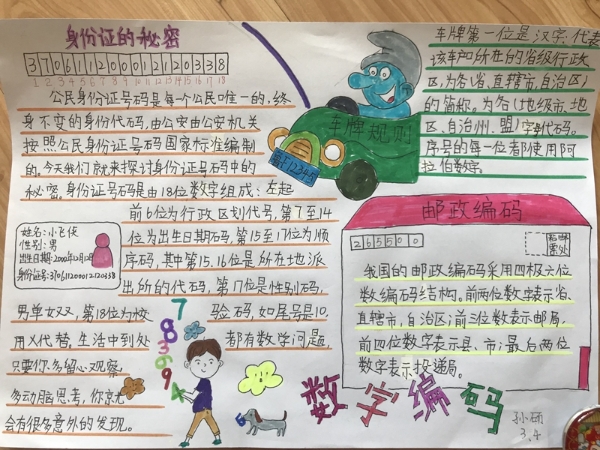 身份证的秘密
370611200012120338
1 2 3 4 5 6 7 8 9 10 11 12 13 14 15 16 17 18
公民身份证号码是每个公民唯一的、终
身不变的身份代码,由公安由公安机关
按照公民身份证号码国家标准编制
的。今天我们就来探讨身份证号码中的
秘密。身份证号码是由18位数字组成:左起
前6位为行政区划代号,第7至14
位为出生日期码,第15至17位为顺
序码,其中第15.16位是所在地派
出所的代码,第17位是性别码,
男单女双,第18位为校验码,如尾号是10,
用X代替,生活中到处都有数学问题,
只要你多留心观察,
多动脑思考,你就
会有很多意外的发现。
姓名:小飞侠
性别:男
出生日期:2000年12月12日
身份证号:370611200012120338
7
8
3
6
9
4
6
车牌规则
12345
车牌第一位是汉字:代表
该车户所在的省级行政
区,为(省、直辖市,自治区)
的简称,为(地级市、地
区、自治州、盟)字母代码。
序号的每一位都使用阿
拉伯数字。
邮政编码
265500
贴邮
票处
我国的邮政编码采用四级六位
数编码结构。前两位数字表示省、
直辖市,自治区;前三位数表示邮局,
前四位数字表示县、市;最后两位
数字表示投递局。
数字编码
孙硕
3.4